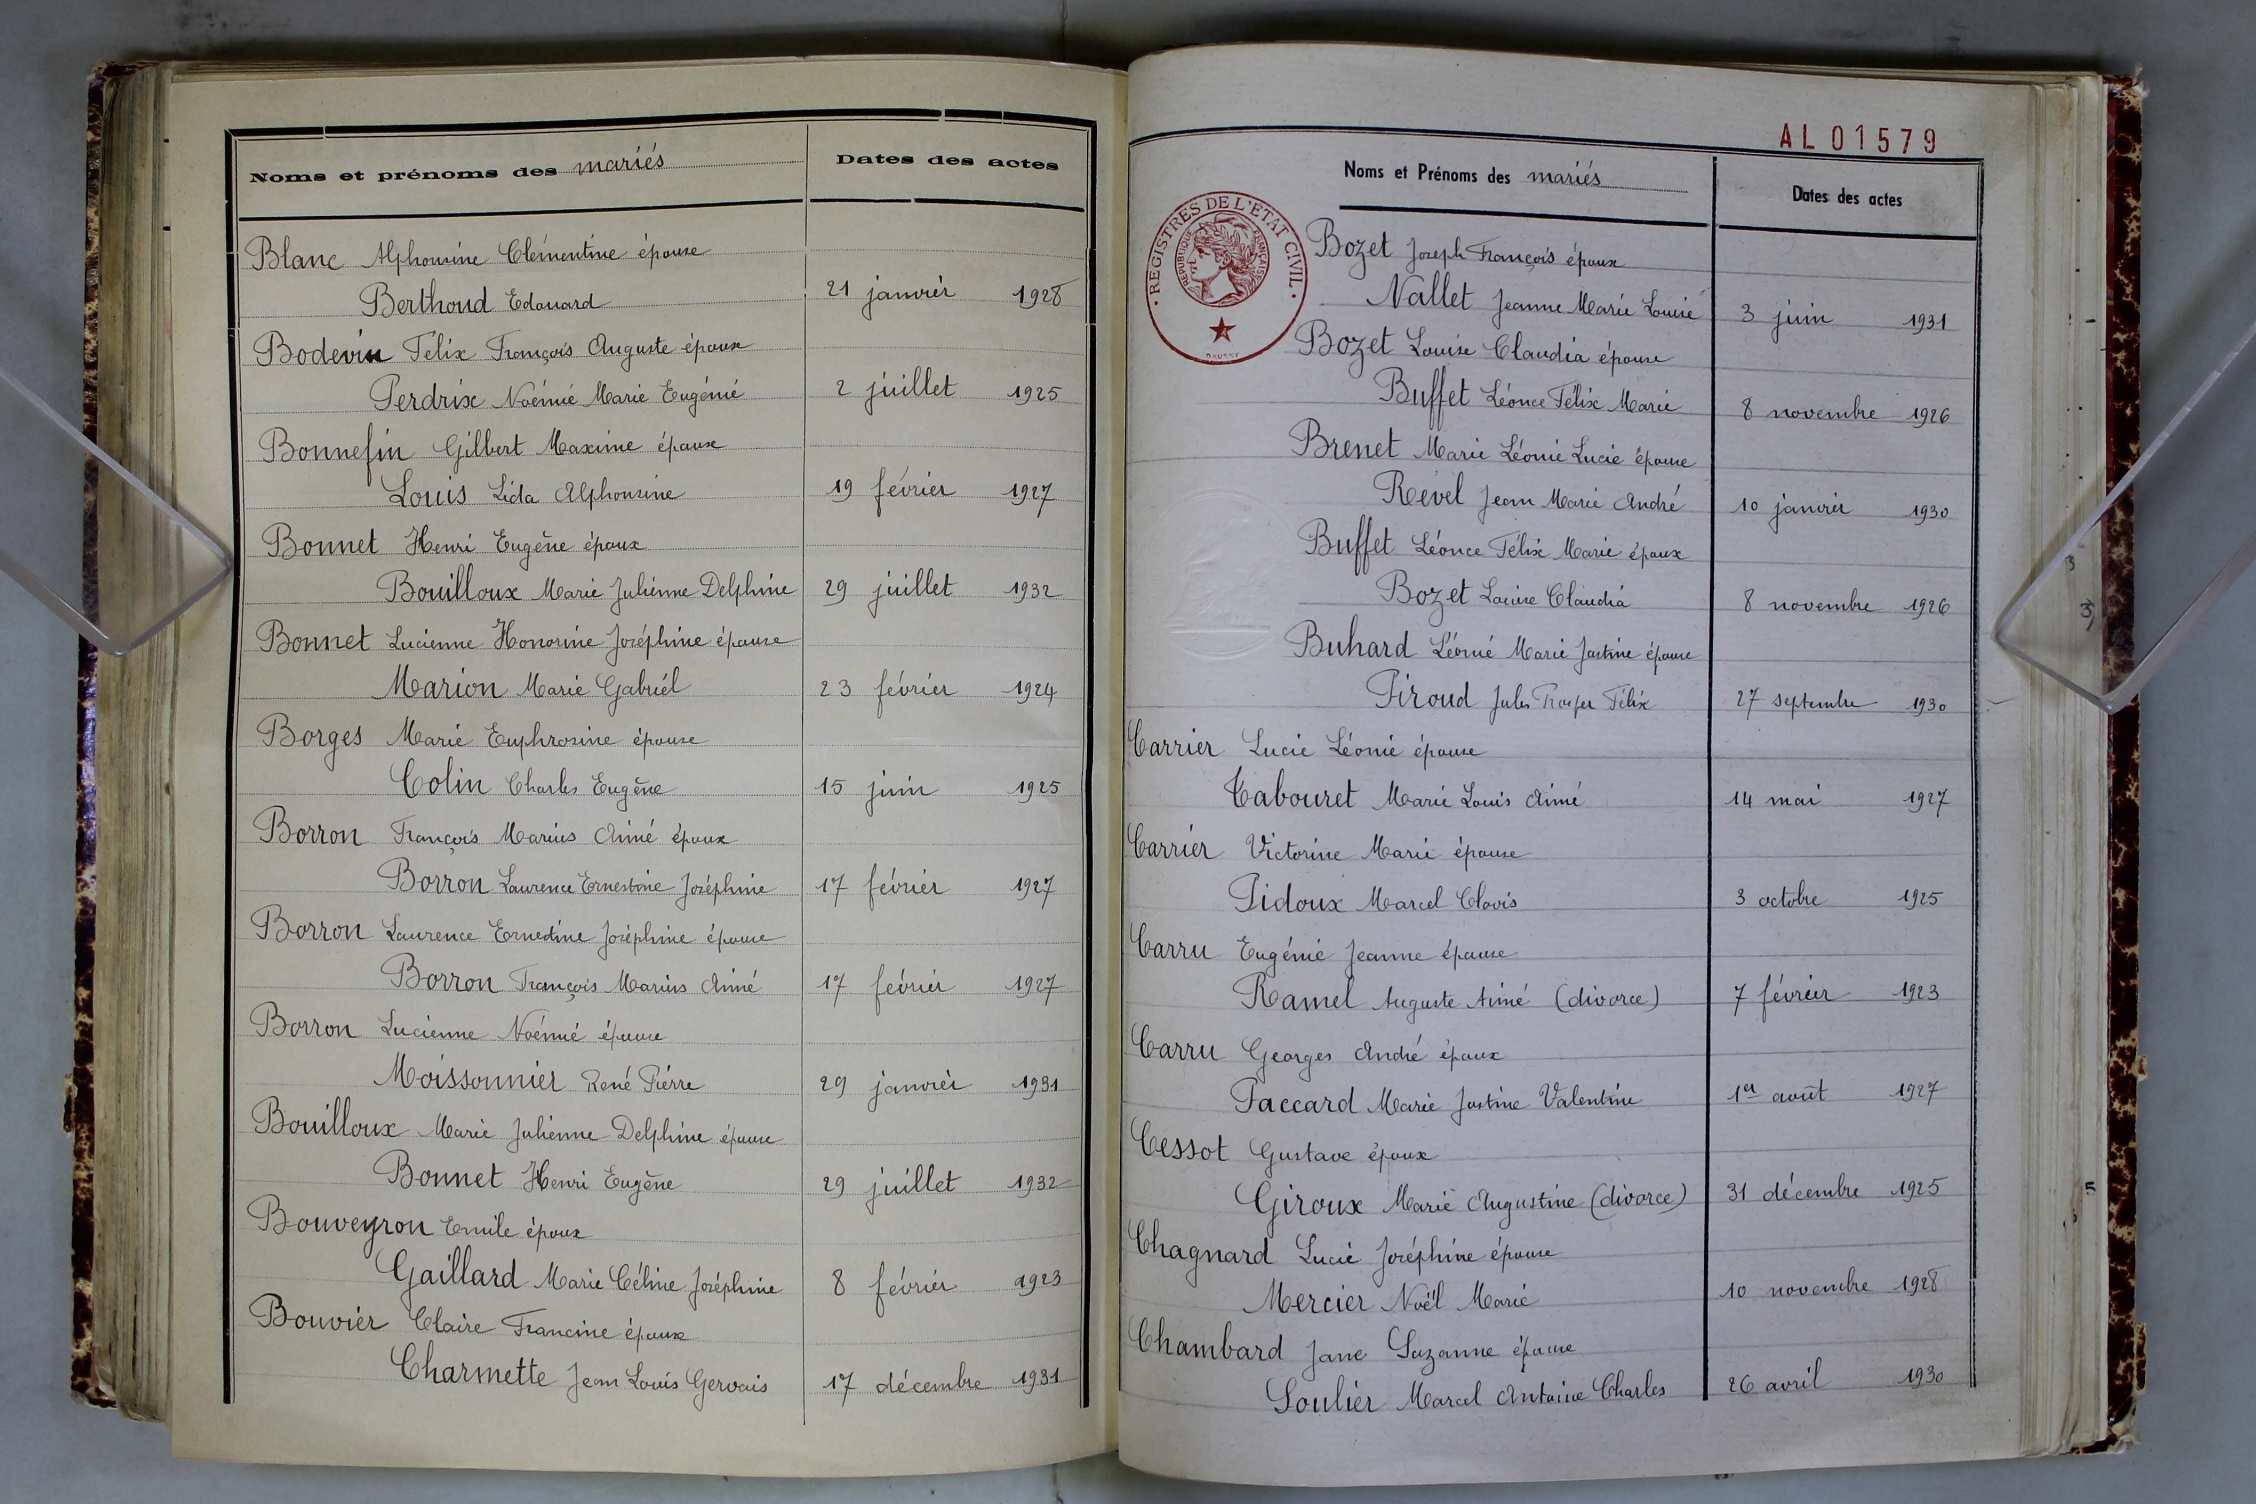 Noms et prénoms des mariés
Dates des actes
Blanc Alphonsine Clémentine épouse
Berthoud Edouard 21 janvier 1928
Bodevin Félix François Auguste époux
Perdrix Noémie Marie Eugénie 2 juillet 1925
Bonnefin Gilbert Maxime époux
Louis Lida Alphonsine 19 février 1927
Bonnet Henri Eugène époux
Bouilloux Marie Julienne Delphine 29 juillet 1932
Bonnet Lucienne Honorine Joséphine épouse
Marion Marie Gabriel 23 février 1924
Borges Marie Euphrosine épouse
Colin Charles Eugène 15 juin 1925
Borron François Marius Aimé époux
Borron Laurence Ernestine Joséphine 17 février 1927
Borron Laurence Ernestine Joséphine épouse
Borron François Marius Aimé 17 février 1927
Borron Lucienne Noémie épouse
Moissonnier René Pierre 29 janvier 1931
Bouilloux Marie Julienne Delphine épouse
Bonnet Henri Eugène 29 juillet 1932
Bouveyron Emile époux
Gaillard Marie Céline Joséphine 8 février 1923
Bouvier Claire Francine épouse
Charmette Jean Louis Gervais 17 décembre 1931
AL01579
Noms et Prénoms des mariés
Dates des actes
REGISTRES DE L'ETAT CIVIL
REPUBLIQUE FRANÇAISE
Bozet Joseph François époux
Nallet Jeanne Marie Louise 3 juin 1931
Bozet Louise Claudia épouse
Buffet Léonce Félix Marie 8 novembre 1926
Brenet Marie Léonie Lucie épouse
Revel Jean Marie André 10 janvier 1930
Buffet Léonce Félix Marie époux
Bozet Louise Claudia 8 novembre 1926
Buhard Léonie Marie Justine épouse
Piroud Jules Prosper Félix 27 septembre 1930
Carrier Lucie Léonie épouse
Tabouret Marie Louis Aimé 14 mai 1927
Carrier Victorine Marie épouse
Pidoux Marcel Clovis 3 octobre 1925
Carru Eugénie Jeanne épouse
Ramel Auguste Aimé (divorce) 7 février 1923
Carru Georges André époux
Paccard Marie Justine Valentine 1er août 1927
Cessot Gustave époux
Giroux Marie Augustine (divorce) 31 décembre 1925
Chagnard Lucie Joséphine épouse
Mercier Noël Marie 10 novembre 1928
Chambard Jane Suzanne épouse
Soulier Marcel Antoine Charles 26 avril 1930